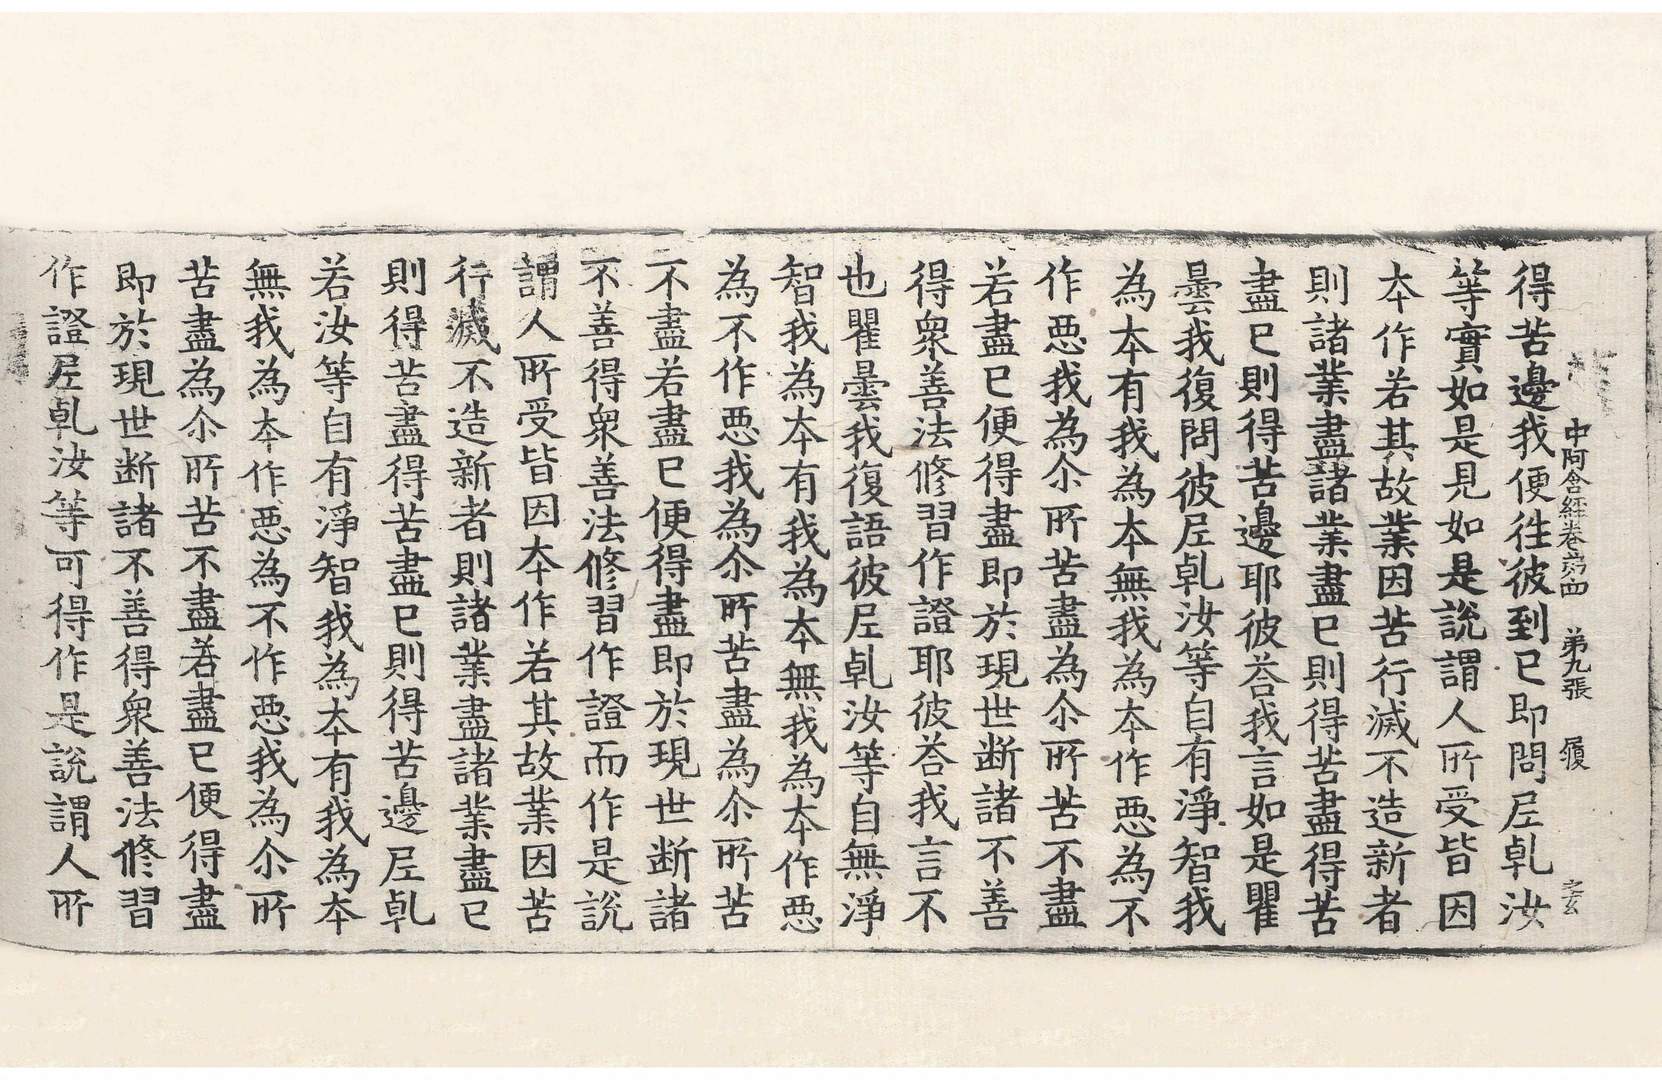 中阿含經卷第四　第九張　履
得苦邊我便徃彼到已即問𡰱乹汝
等實如是見如是說謂人所受皆因
夲作若其故業因苦行滅不造新者
則諸業盡諸業盡已則得苦盡得苦
盡已則得苦邊耶彼荅我言如是瞿
曇我復問彼𡰱乹汝等自有淨智我
為本有我為本無我為本作惡為不
作惡我為尒所苦盡為尒所苦不盡
若盡已便得盡即於現世断諸不善
得衆善法修習作證耶彼荅我言不
也瞿曇我復語彼𡰱乹汝等自無淨
智我為夲有我為夲無我為本作惡
為不作惡我為尒所苦盡為尒所苦
不盡若盡已便得盡即於現世断諸
不善得衆善法修習作證而作是說
謂人所受皆因夲作若其故業因苦
行滅不造新者則諸業盡諸業盡已
則得苦盡得苦盡已則得苦邊𡰱乹
若汝等自有淨智我為夲有我為夲
無我為夲作惡為不作惡我為尒所
苦盡為尒所苦不盡若盡已便得盡
即於現世断諸不善得衆善法修習
作證𡰱乹汝等可得作是說謂人所